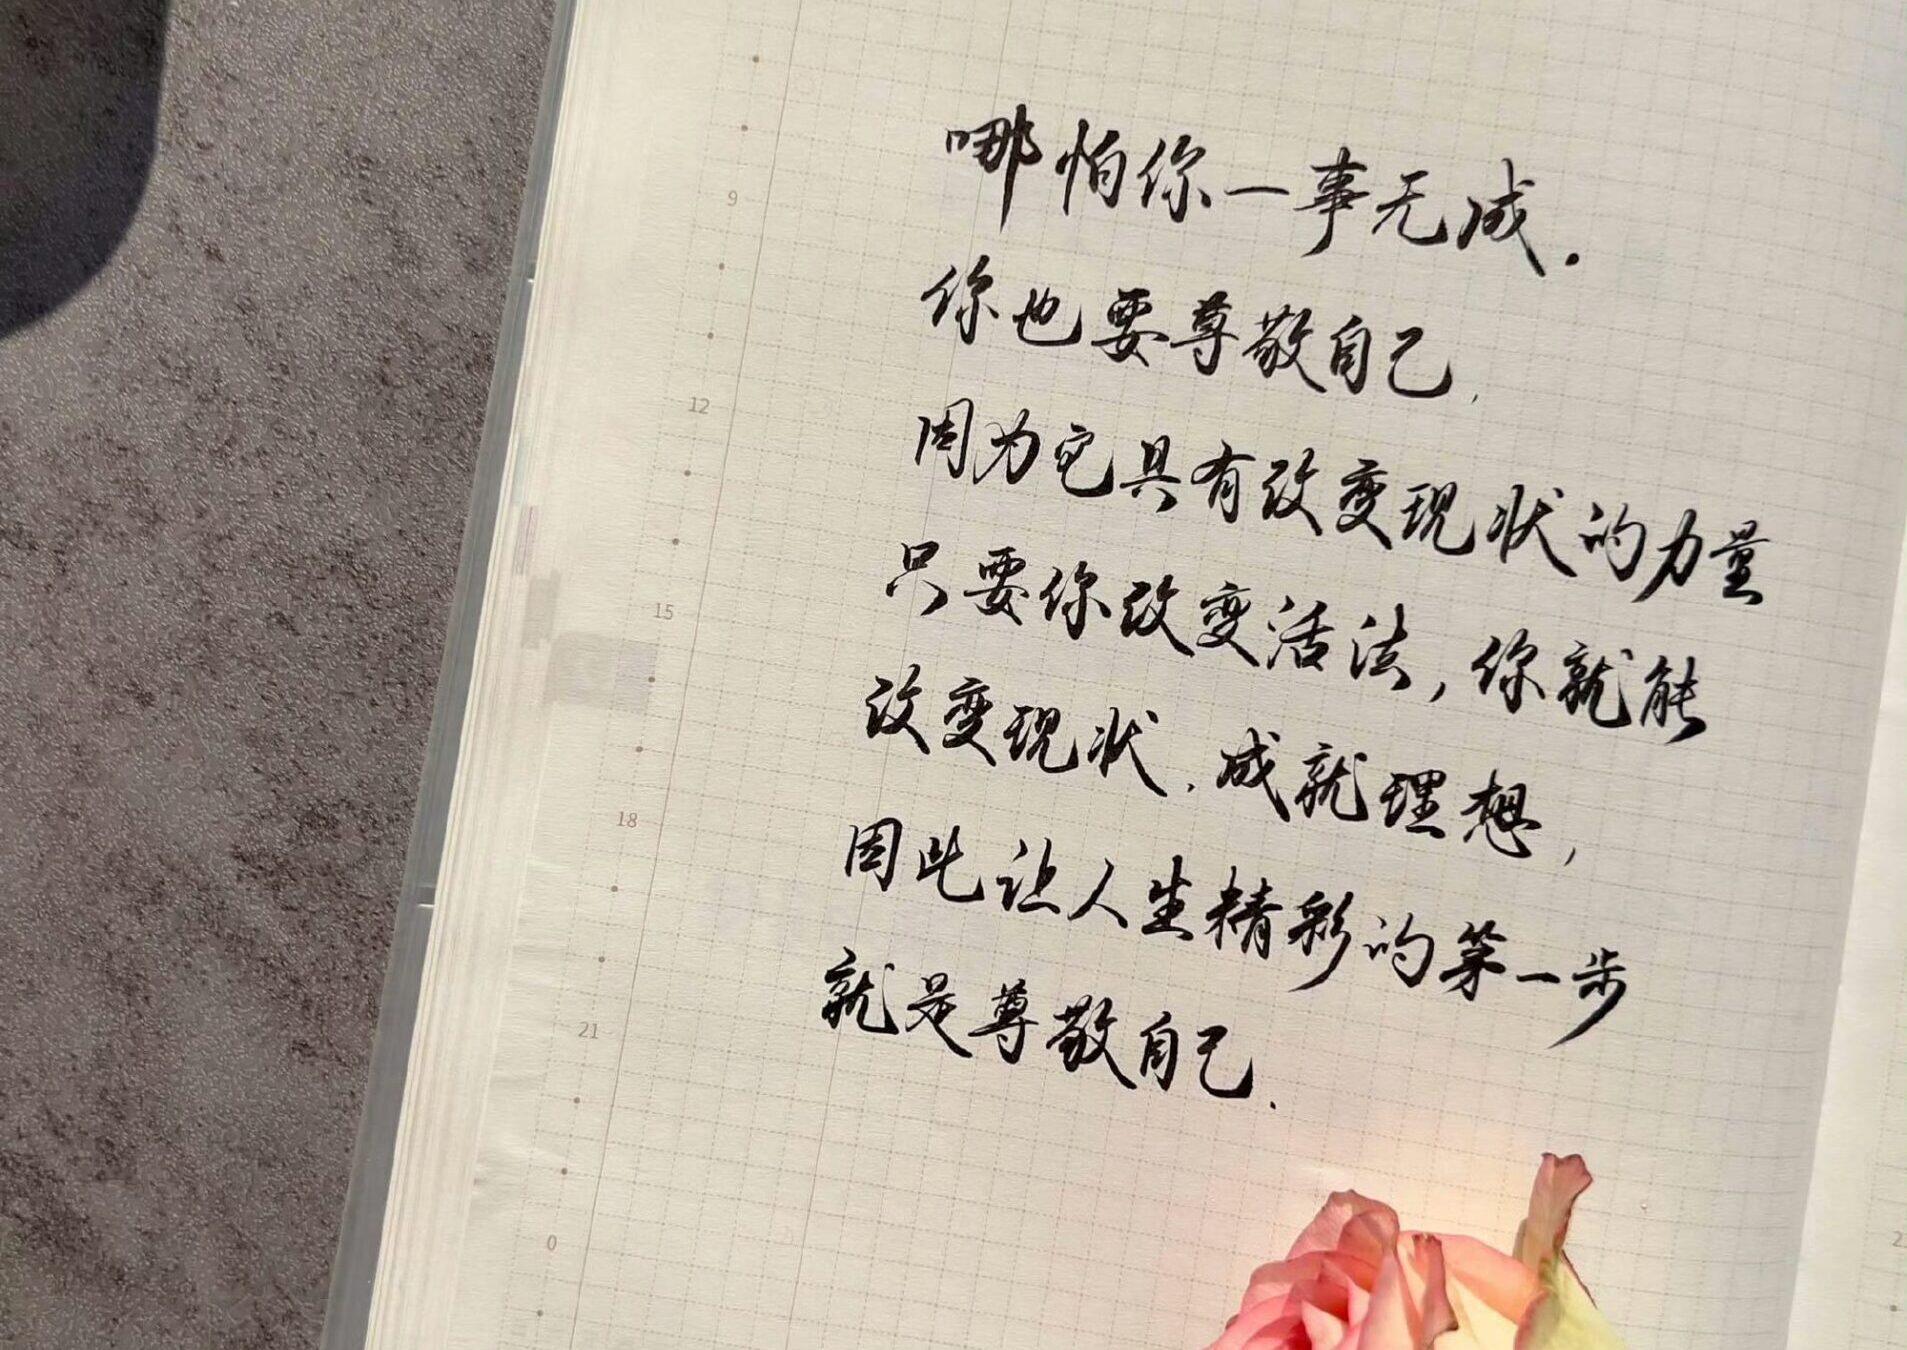 哪怕你一事无成.
你也要尊敬自己,
因为它具有改变现状的力量
只要你改变活法,你就能
改变现状,成就理想,
因此让人生精彩的第一步
就是尊敬自己.
9
12
15
18
21
0
2